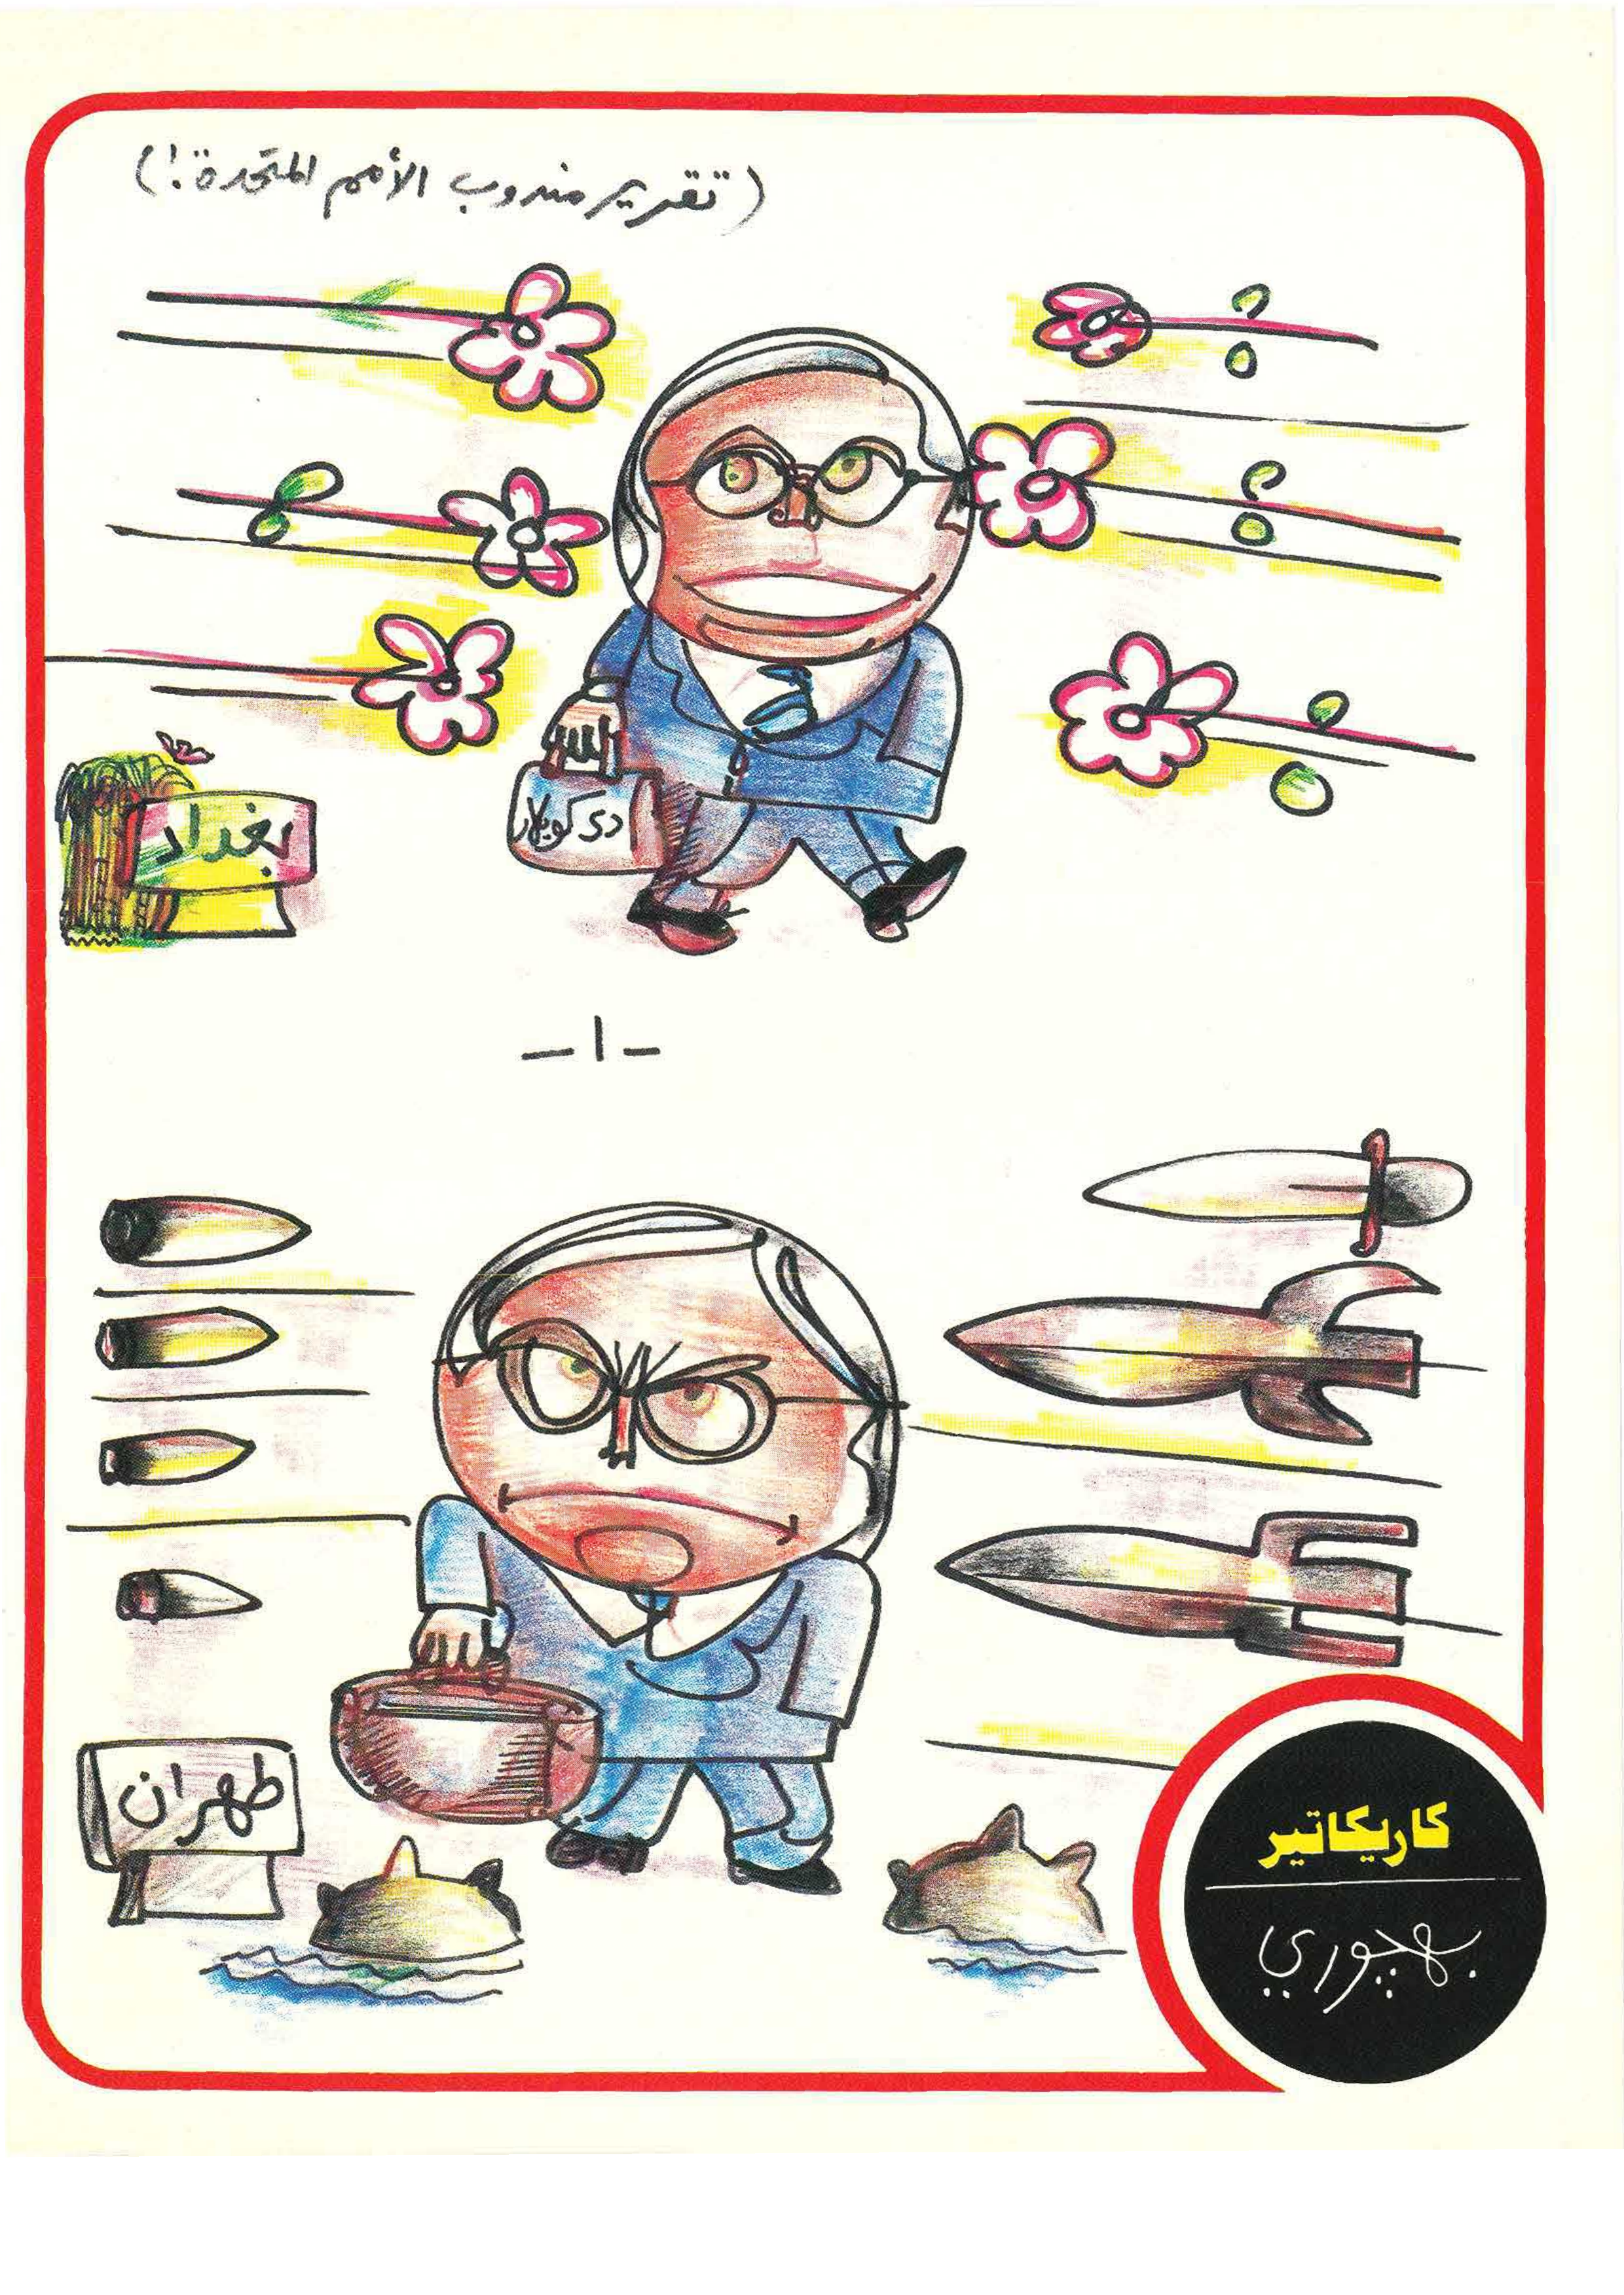 (تقرير مندوب الأمم المتحدة!)
دي كويلار
بغداد
- ١ -
طهران
كاريكاتير
بهجوري